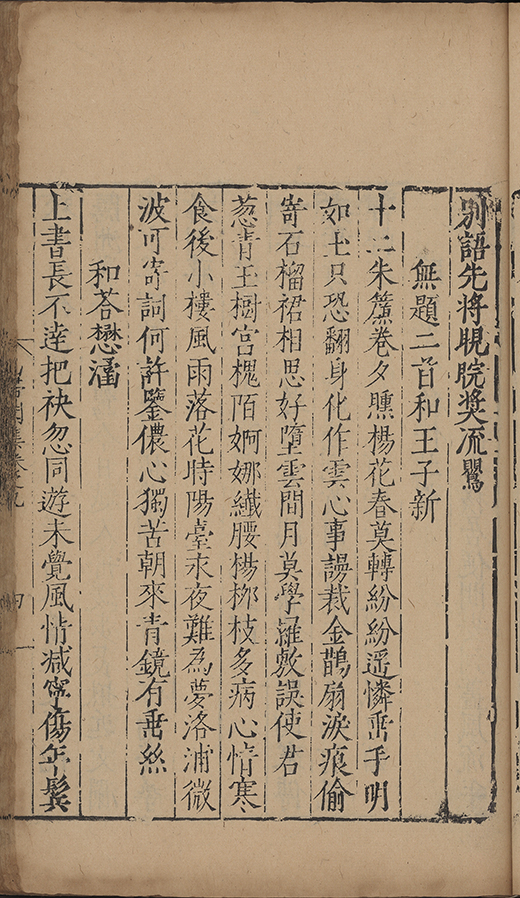 別語先將睍睆奨流鶯
無題二首和王子新
十二朱簾卷夕曛楊花春莫轉紛紛遥憐垂手明
如玉只恐翻身化作雲心事謾裁金鵲扇淚痕偷
寄石榴裙相思好墮雲間月莫學羅敷誤使君
葱青玉樹宮槐陌婀娜纖腰楊栁枝多病心情寒
食後小樓風雨落花時陽臺永夜難為夢洛浦微
波可寄詞何許鑒儂心獨苦朝來青鏡有垂絲
和荅懋潘
上書長不達把袂忽同遊未覺風情减寧傷年鬢
集卷九
四